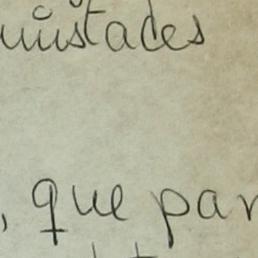 amistades
, que par